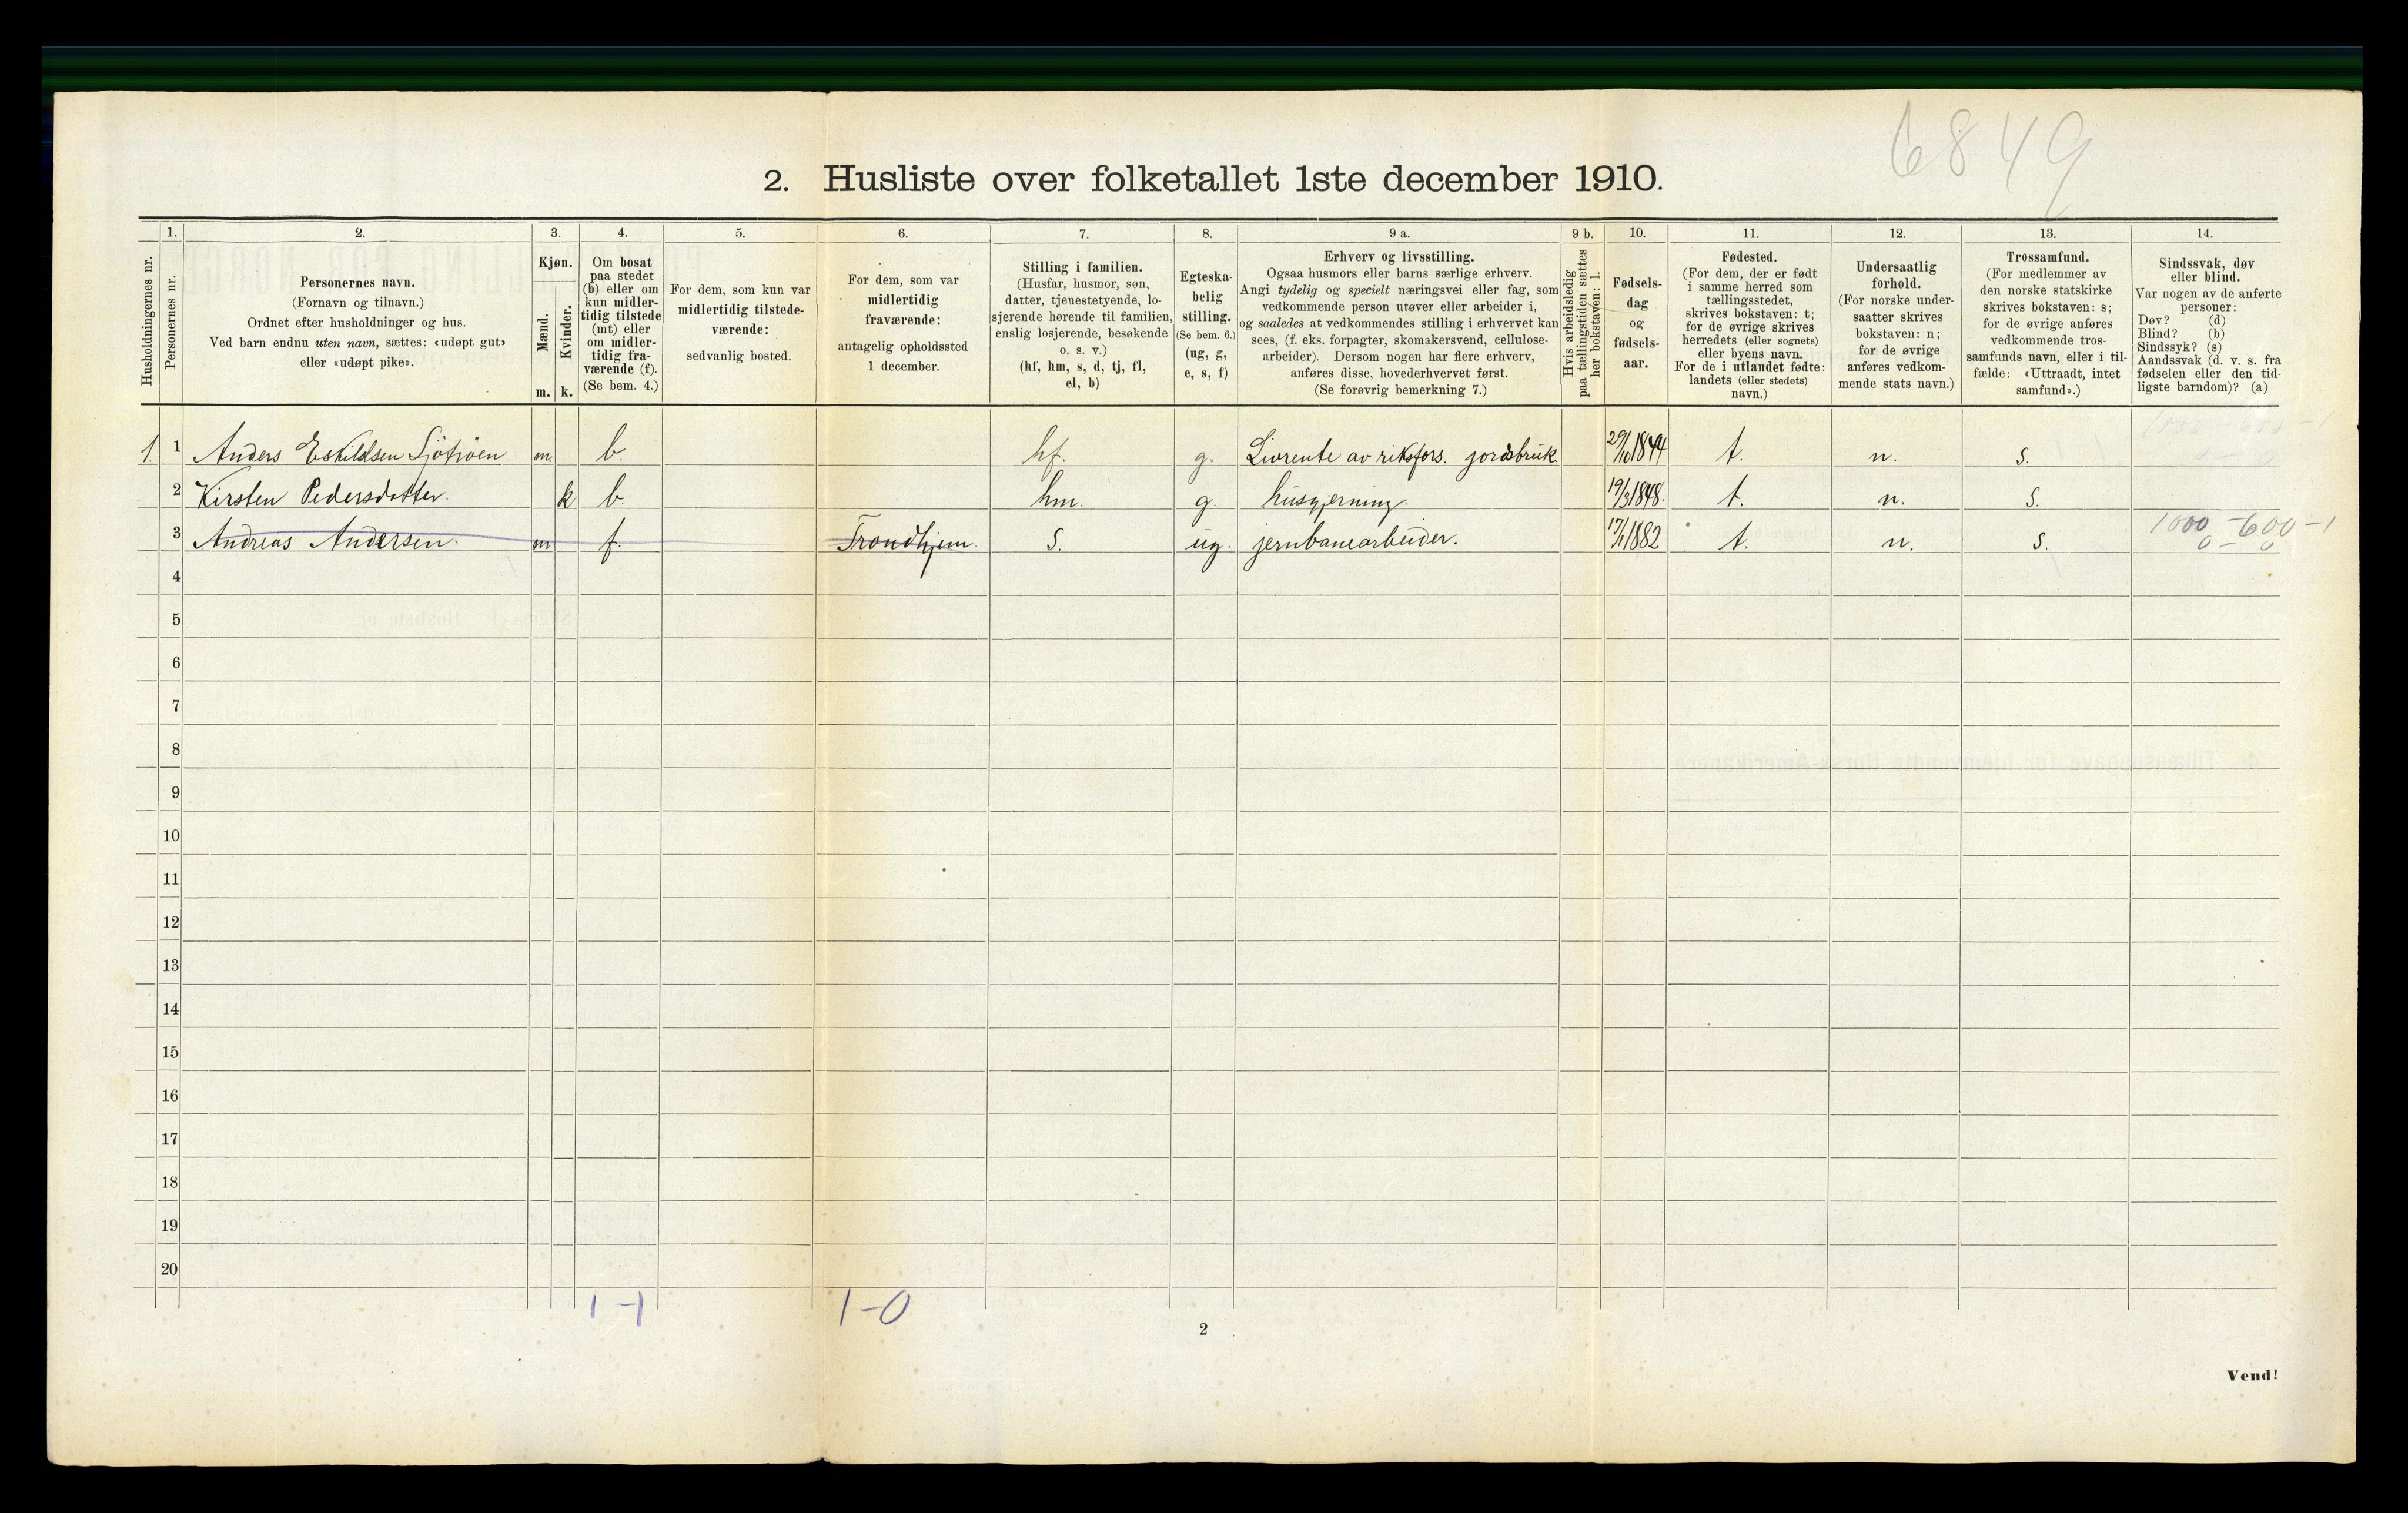 6849
2. Husliste over folketallet 1ste december 1910.
1. 2. 3. 4. 5. 6. 7. 8. 9 a. 9 b. 10. 11. 12. 13. 14.
Husholdningernes nr.
Personernes nr.
Personernes navn.
(Fornavn og tilnavn.)
Ordnet efter husholdninger og hus.
Ved barn endnu uten navn, sættes: «udøpt gut»
eller «udøpt pike».
Kjøn.
Mænd.
Kvinder.
m. k.
Om bosat
paa stedet
(b) eller om
kun midler-
tidig tilstede
(mt) eller
om midler-
tidig fra-
værende (f).
(Se bem. 4.)
For dem, som kun var
midlertidig tilstede-
værende:
sedvanlig bosted.
For dem, som var
midlertidig
fraværende:
antagelig opholdssted
1 december.
Stilling i familien.
(Husfar, husmor, søn,
datter, tjenestetyende, lo-
sjerende hørende til familien,
enslig losjerende, besøkende
o. s. v.)
(hf, hm, s, d, tj, fl,
el, b)
Egteska-
belig
stilling.
(Se bem. 6.)
(ug, g,
e, s, f)
Erhverv og livsstilling.
Ogsaa husmors eller barns særlige erhverv.
Angi tydelig og specielt næringsvei eller fag, som
vedkommende person utøver eller arbeider i,
og saaledes at vedkommendes stilling i erhvervet kan
sees, (f. eks. forpagter, skomakersvend, cellulose-
arbeider). Dersom nogen har flere erhverv,
anføres disse, hovederhvervet først.
(Se forøvrig bemerkning 7.)
Hvis arbeidsledig
paa tællingstiden sættes
her bokstaven: l.
Fødsels-
dag
og
fødsels-
aar.
Fødested.
(For dem, der er født
i samme herred som
tællingsstedet,
skrives bokstaven: t;
for de øvrige skrives
herredets (eller sognets)
eller byens navn.
For de i utlandet fødte:
landets (eller stedets)
navn.)
Undersaatlig
forhold.
(For norske under-
saatter skrives
bokstaven: n;
for de øvrige
anføres vedkom-
mende stats navn.)
Trossamfund.
(For medlemmer av
den norske statskirke
skrives bokstaven: s;
for de øvrige anføres
vedkommende tros-
samfunds navn, eller i til-
fælde: «Uttraadt, intet
samfund».)
Sindssvak, døv
eller blind.
Var nogen av de anførte
personer:
Døv? (d)
Blind? (b)
Sindssyk? (s)
Aandssvak (d. v. s. fra
fødselen eller den tid-
ligste barndom)? (a)
1. 1 Anders Eskildsen Sjötröen m. b. hf. g. Livrente av riksfors. jordbruk 29/10 1844 t. n. s.
2 Kirsten Pedersdatter. k b. hm. g. husgjerning 19/3 1848. t. n. s.
3 Andreas Andersen. m f. Trondhjem. s. ug. jernbanearbeider. 17/1 1882 t. n. s. 1000-600-1
0-0
4
5
6
7
8
9
10
11
12
13
14
15
16
17
18
19
20
1-1 1-0
2
Vend!